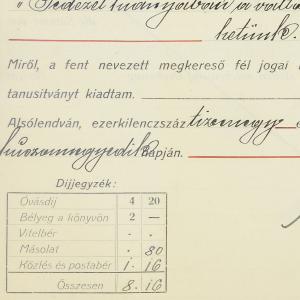 „Fedezet hiányában a vált
hetünk.
Miről, a fent nevezett megkereső fél jogai
tanusitványt kiadtam.
Alsólendván, ezerkilencszáz tizenegy
huszonnegyedik napján.
Díjjegyzék:
Óvásdíj 4 20
Bélyeg a könyvön 2 —
Vitelbér . .
Másolat . 80
Közlés és postabér 1. 16
Összesen 8. 16